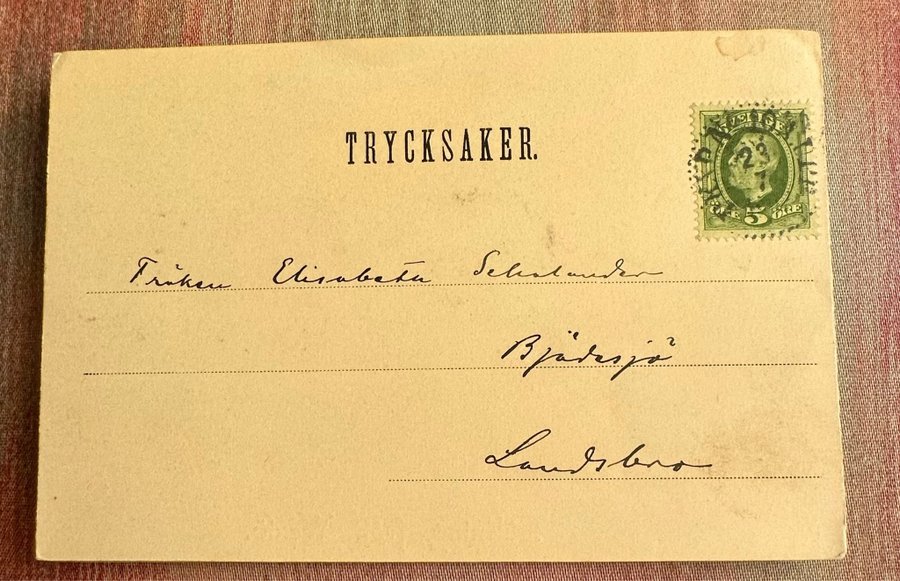 TRYCKSAKER.
SVERIGE
23
7
5
ÖRE
Fröken Elisabeth Schelander
Bjädesjö
Landsbro